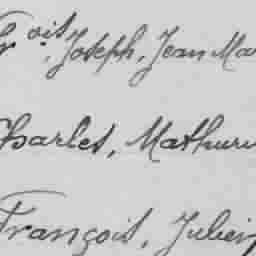 Fr ois, Joseph, Jean Ma
Charles, Mathuri
François, Julien